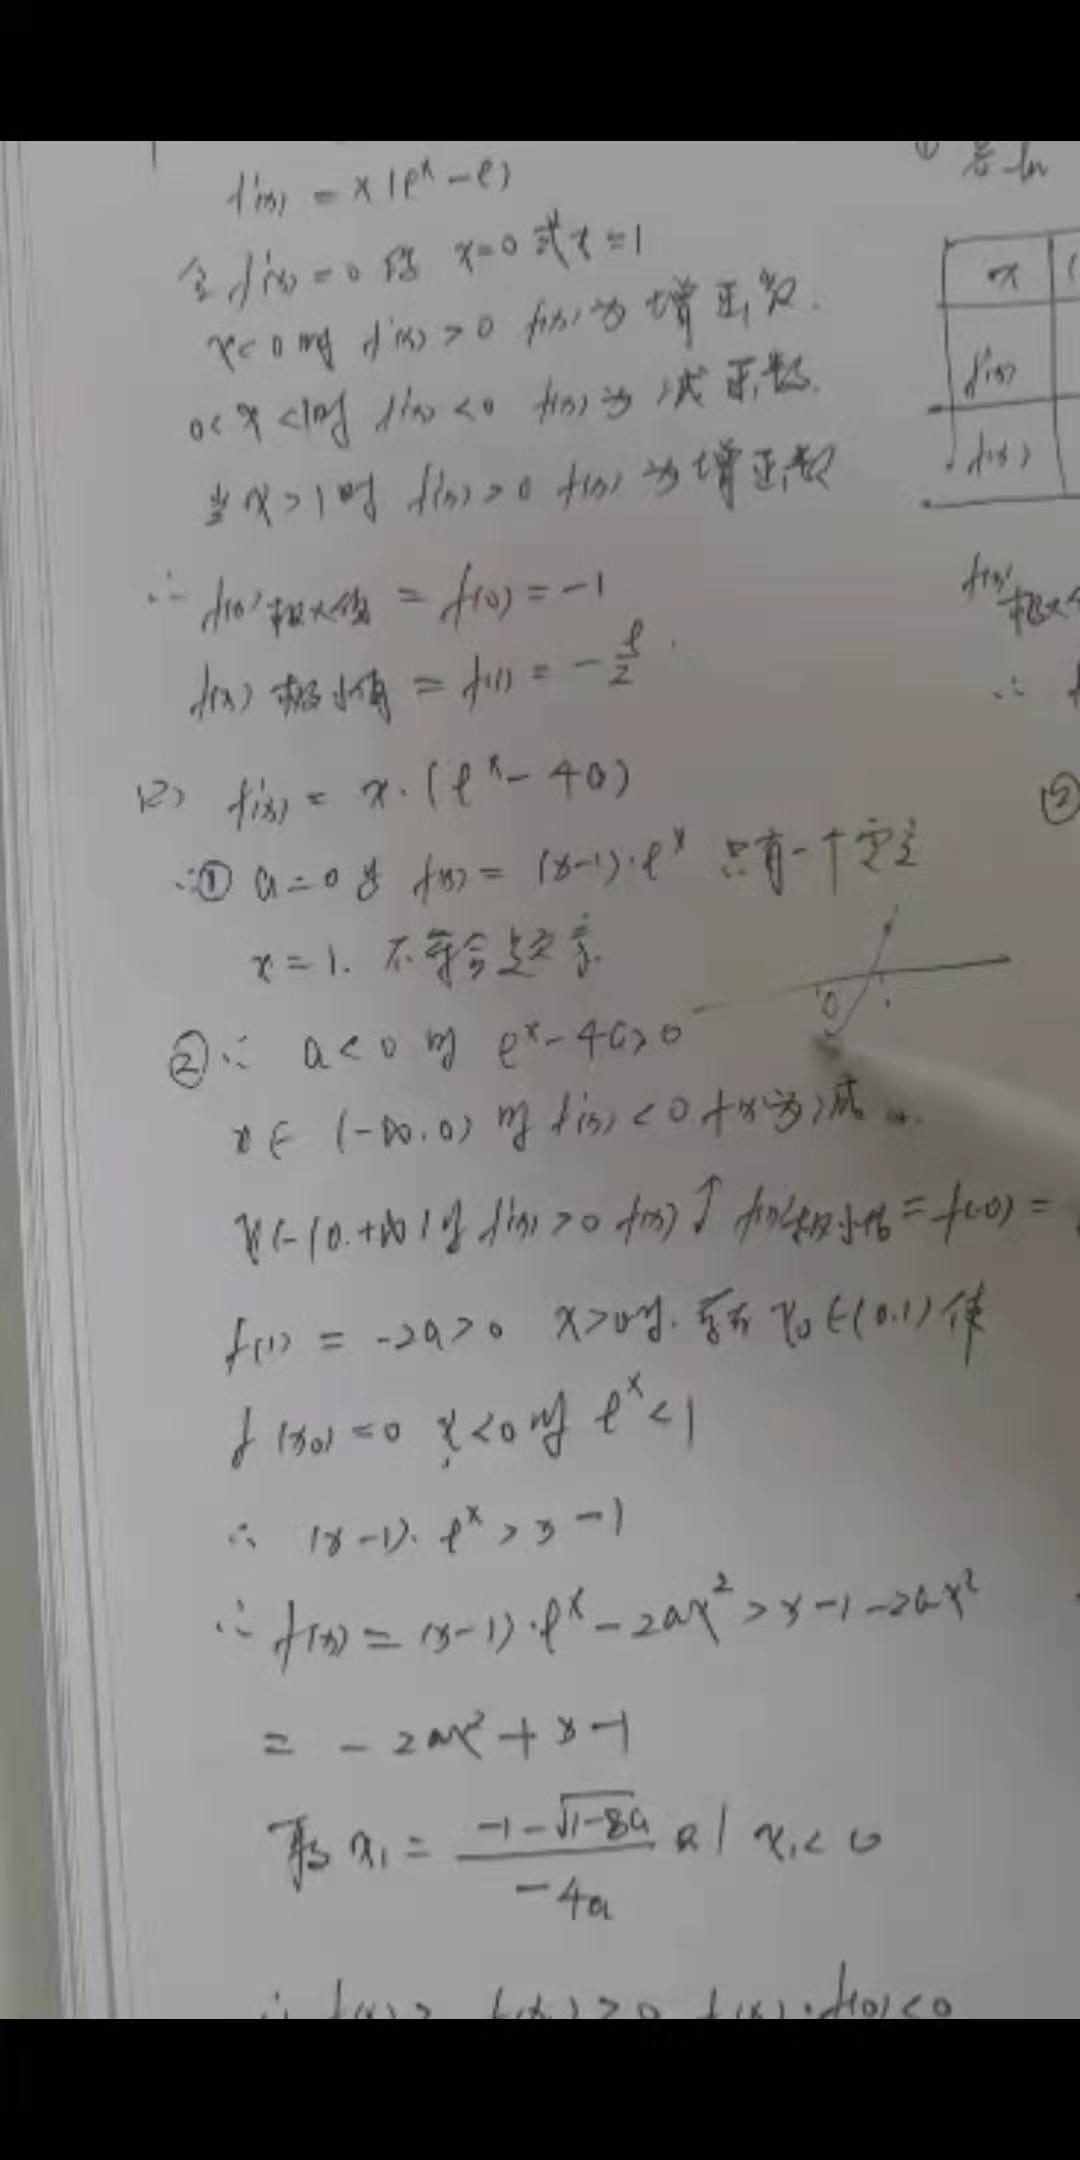 f'(x) = x(e^x - e)
① 若 ln
令 f'(x) = 0 得 x=0 或 x=1
x
x<0 时 f'(x) > 0 f(x) 为增函数.
f'(x)
0<x<1时 f'(x) <0 f(x) 为减函数.
f(x)
当 x>1时 f'(x) >0 f(x) 为增函数
∴ f(x) 极大值 = f(0) = -1
f(x) 极大
f(x) 极小值 = f(1) = -e/2.
∴ f
(2) f'(x) = x·(e^x - 4a)
②
∴① a=0 时 f(x) = (x-1)·e^x 只有一个零点
x=1. 不符合题意.
②∵ a<0 时 e^x-4a>0
0 1
x∈(-∞,0) 时 f'(x) <0 f(x)为减
x∈(0,+∞)时 f'(x) >0 f(x)↑ f(x)极小值 = f(0) =
f(1) = -2a>0 x>0时. 存在 x₀∈(0,1) 使
f(x₀)=0 x<0时 e^x<1
∴ (x-1)·e^x > x-1
∴ f(x) = (x-1)·e^x - 2ax² > x-1-2ax²
= -2ax²+x-1
取 x₁ = (-1-√(1-8a))/(-4a) 则 x₁<0
f(x₁)·f(0)<0